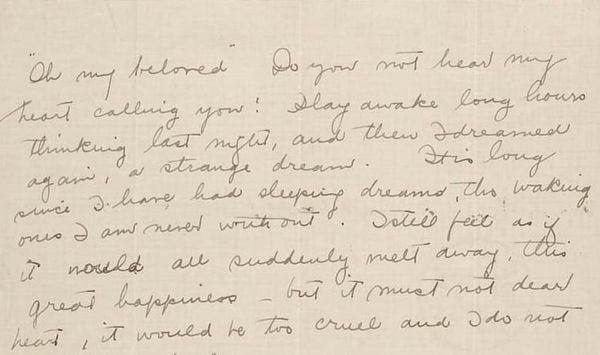 "Oh my beloved" Do you not hear my
heart calling you! I lay awake long hours
thinking last night, and then I dreamed
again, a strange dream. It is long
since I have had sleeping dreams, tho, waking
ones I am never without. I still feel as if
it would all suddenly melt away, this
great happiness – but it must not dear
heart, it would be too cruel and I do not